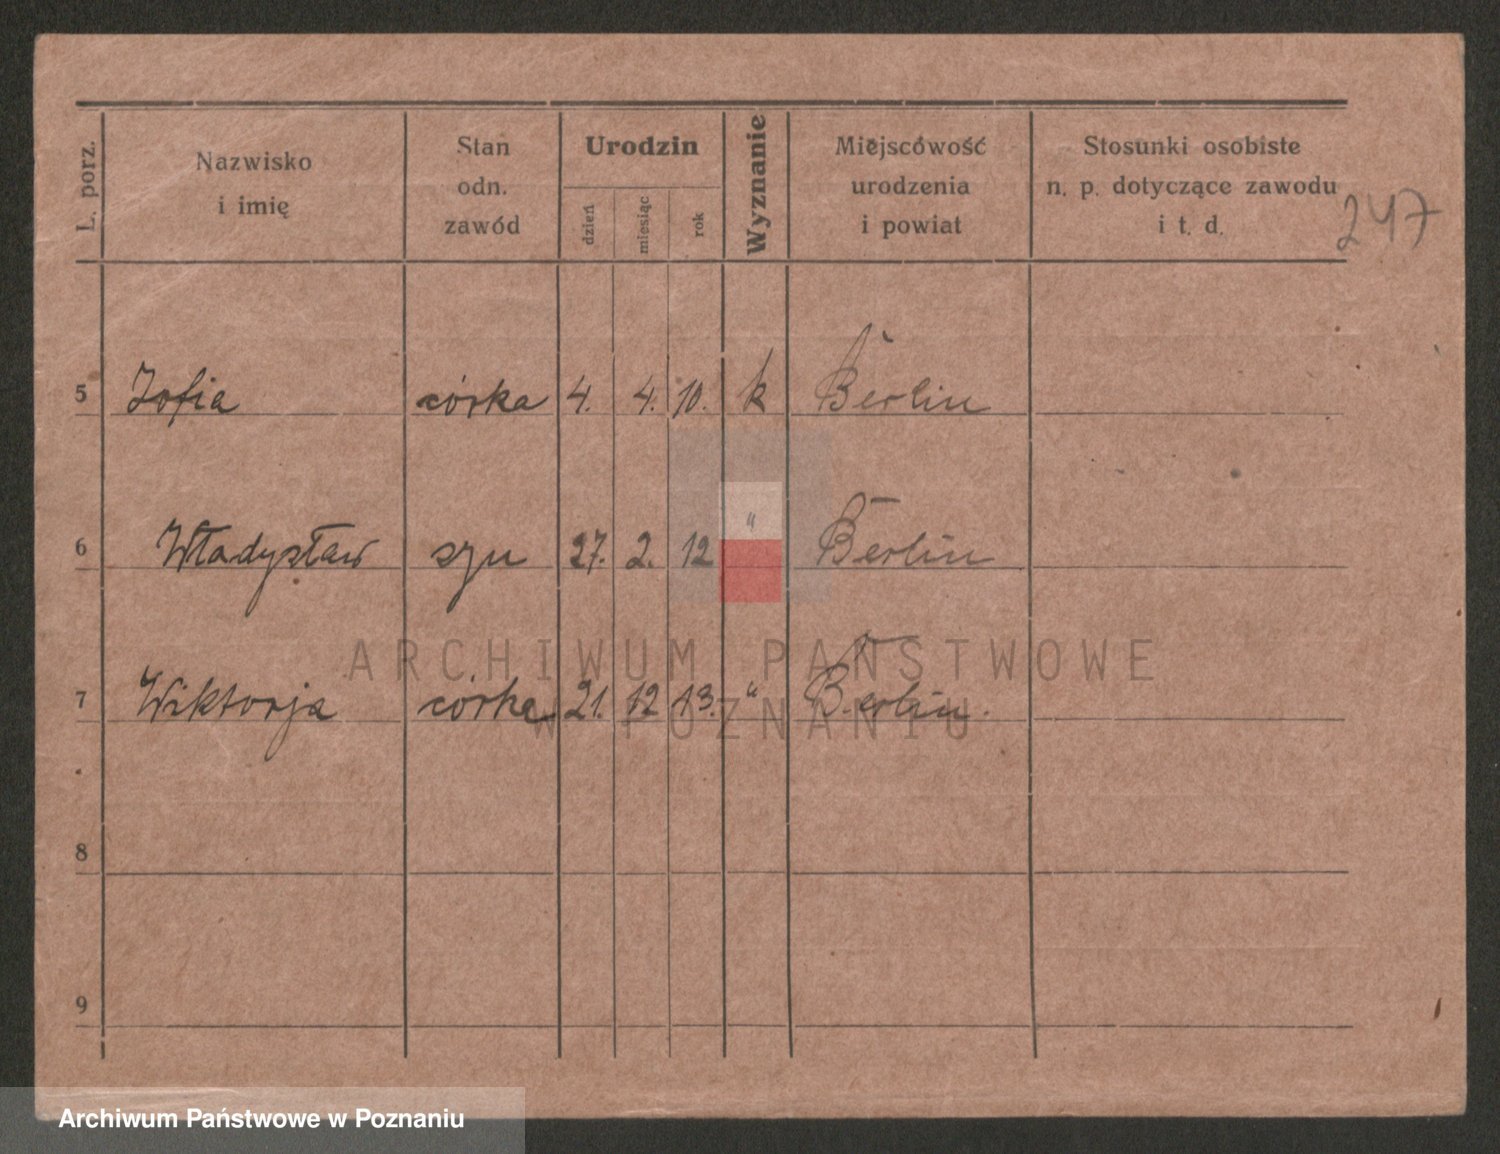 L. porz.
Nazwisko
i imię
Stan
odn.
zawód
Urodzin
dzień
miesiąc
rok
Wyznanie
Miejscowość
urodzenia
i powiat
Stosunki osobiste
n. p. dotyczące zawodu
i t. d.
247
5 Zofia córka 4. 4. 10. k Berlin
6 Władysław syn 27. 2. 12 " Berlin
7 Wiktorja córka 21. 12 13. " Berlin.
8
9
ARCHIWUM PAŃSTWOWE
W POZNANIU
Archiwum Państwowe w Poznaniu